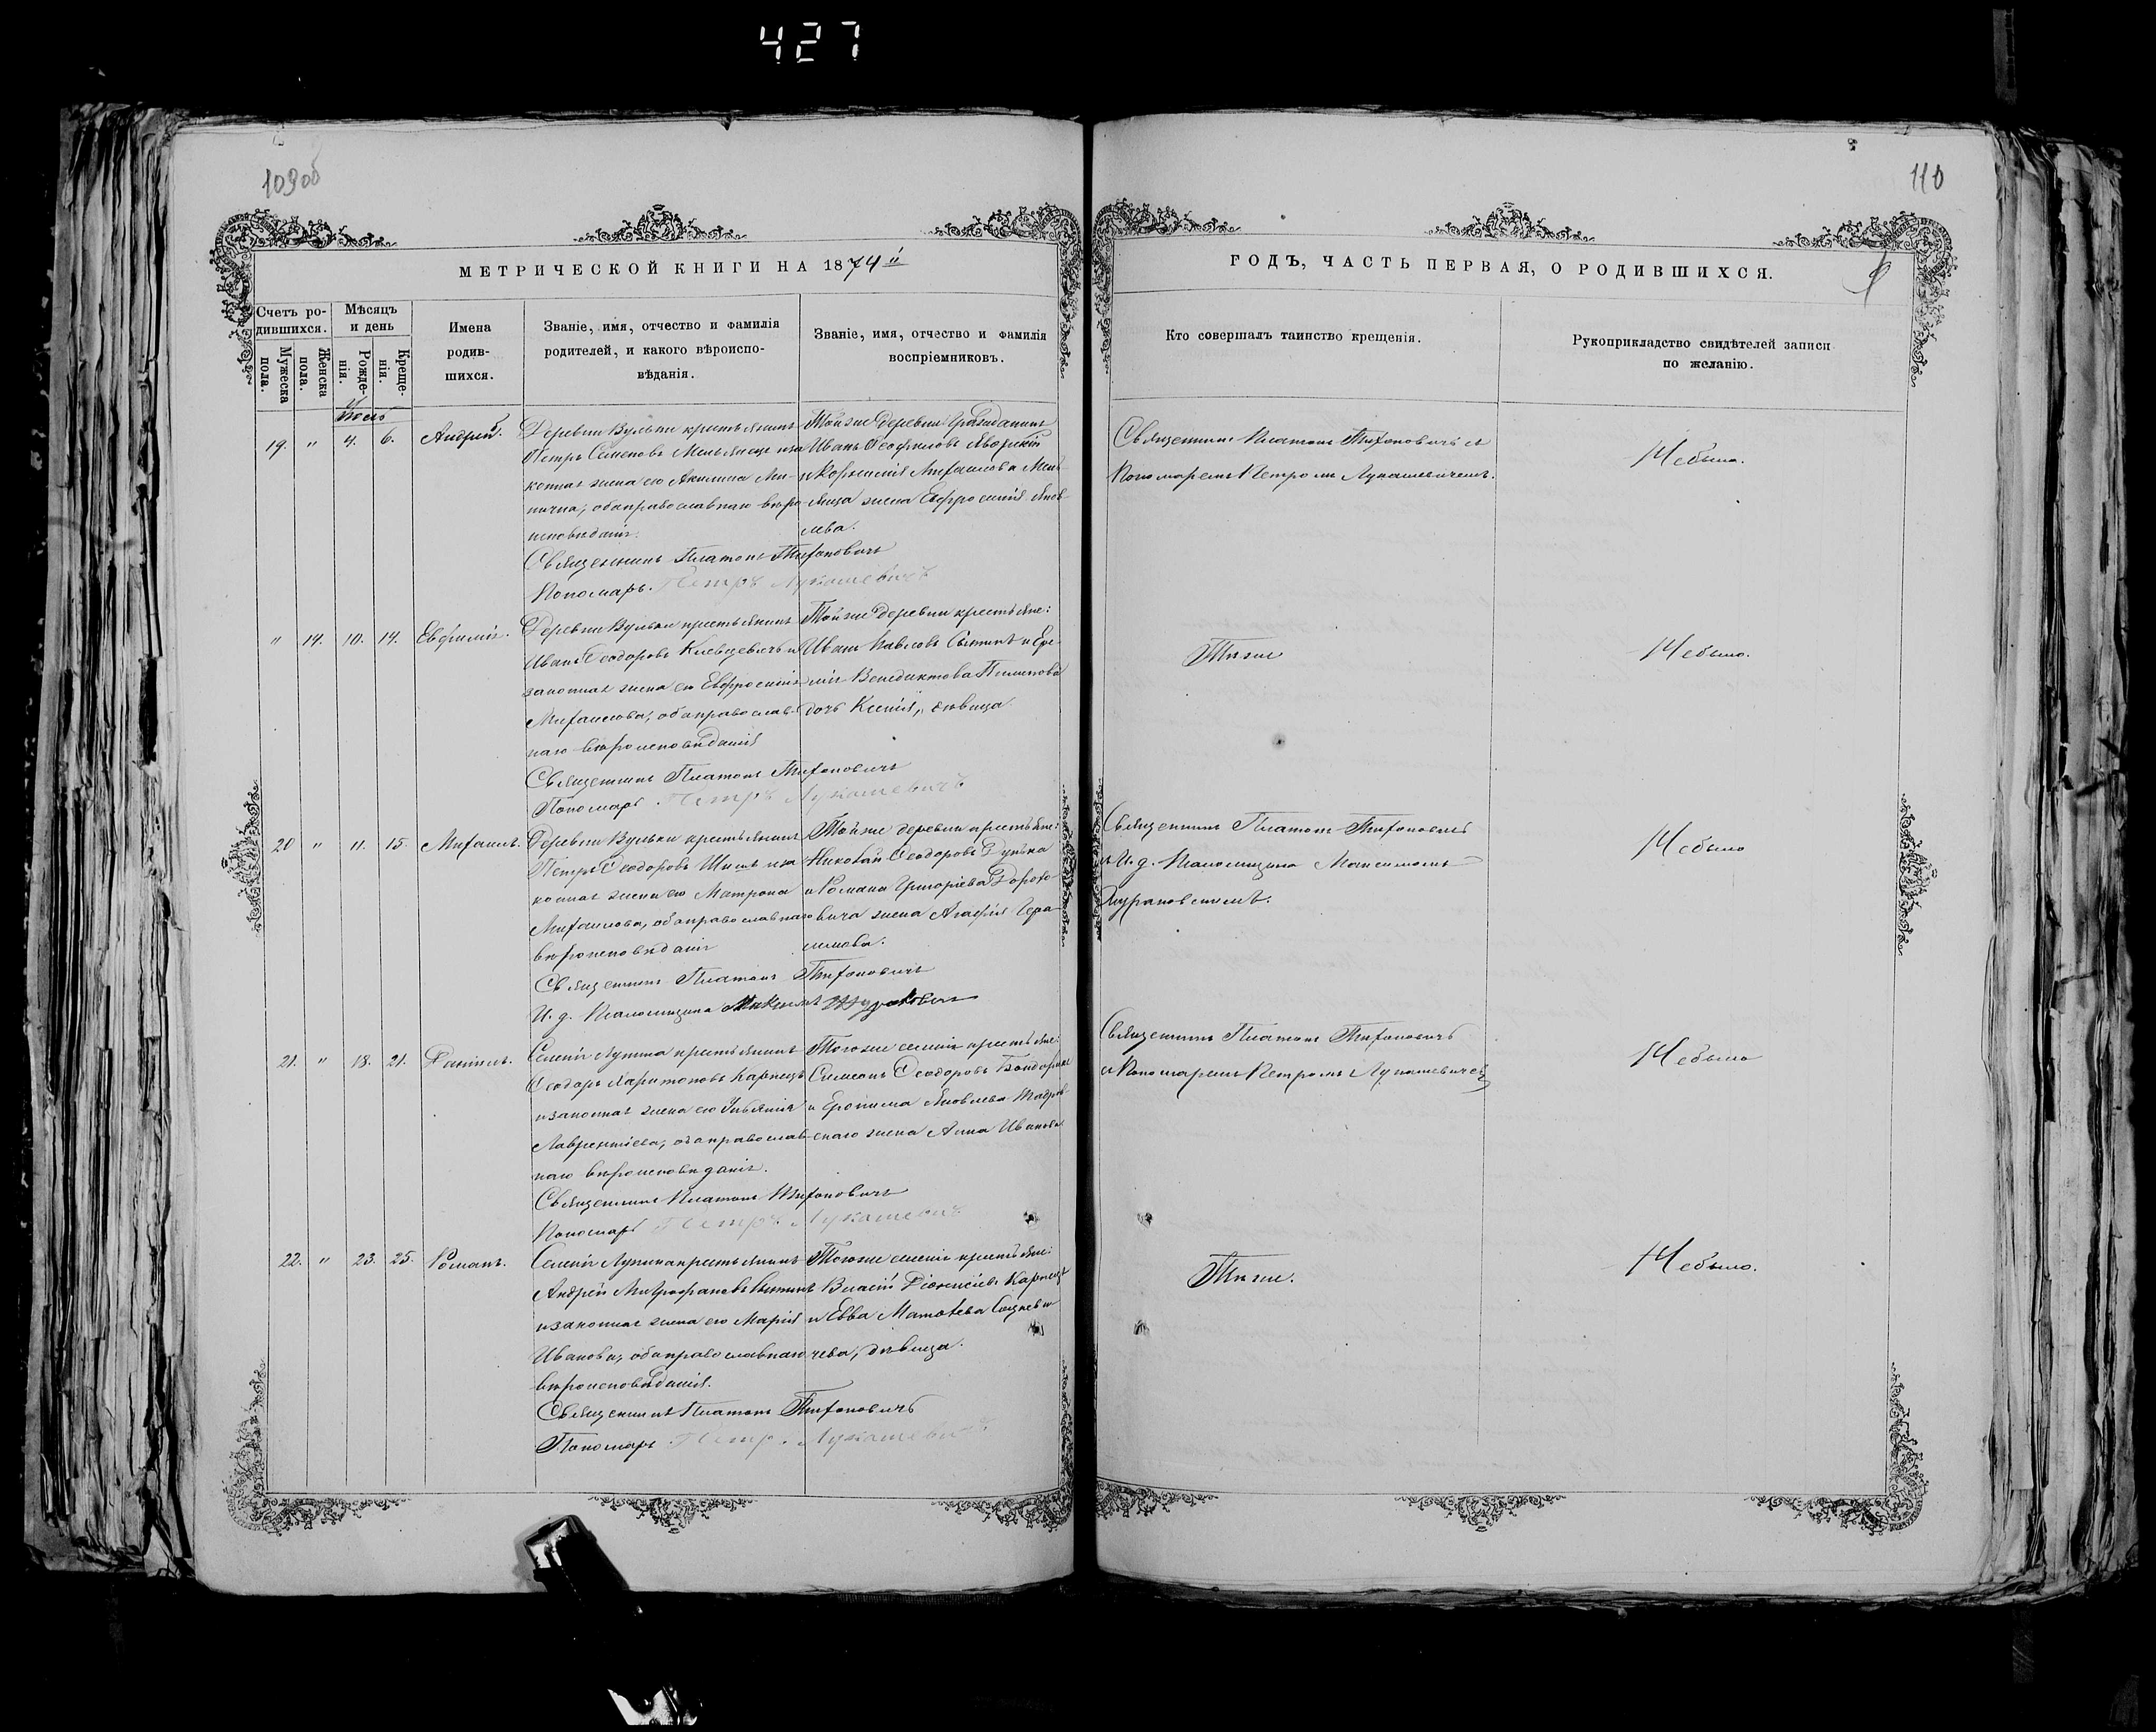 427
109об
110
МЕТРИЧЕСКОЙ КНИГИ НА 1874й
ГОДЪ, ЧАСТЬ ПЕРВАЯ, О РОДИВШИХСЯ.
9
Счетъ ро-
дившихся.
Мужеска пола.
Женска пола.
Мѣсяцъ
и день
Рожде-
нія.
Креще-
нія.
Имена
родив-
шихся.
Званіе, имя, отчество и фамилія
родителей, и какого вѣроиспо-
вѣданія.
Званіе, имя, отчество и фамилія
воспріемниковъ.
Кто совершалъ таинство крещенія.
Рукоприкладство свидѣтелей записи
по желанію.
19. " 4. 6. Андрей.
Деревни Вульки крестьянинъ
Петръ Семеновъ
конная жена его Акилина
обаправославнаго вѣро
исповѣданія.
Священникъ Платонъ Тихоновичъ
Пономарь. Петръ Лукашевичъ
Тойже деревни Гражданинъ
Иванъ Ѳеофиловъ Яворскій
жена Евфросинія Яков
лева.
Священникъ Платонъ Тихоновичъ и
Пономаремъ Петромъ Лукашевичемъ.
Небыло.
" 14. 10. 14. Евфимія.
Деревни Вульки крестьянинъ
Иванъ Ѳеодоровъ и
законная жена его Евфросинія
Михаилова, обаправослав-
наго вѣроисповѣданія
Священникъ Платонъ Тихоновичъ
Пономарь. Петръ Лукашевичъ
Тойже деревни крестьяне:
Иванъ Павловъ и Ере-
мія Венедиктова
дочь Ксенія, дѣвица.
Тѣже
Небыло.
20 " 11. 15. Михаилъ.
Деревни Вульки крестьянинъ
Петръ Ѳеодоровъ Шишъ иза
конная жена его Матрона
Михаилова, обаправославнаго
вѣроисповѣданія
Священникъ Платонъ Тихоновичъ
И. д. Псаломщика Максимъ Журановичъ
Тойже деревни крестьяне:
Николай Ѳеодоровъ Дунька
и Романа Григоріева Дорохо-
вича жена Агафія Гера-
симова.
Священникъ Платонъ Тихоновичъ
и И. д. Псаломщика Максимомъ
Журановичемъ.
Небыло
21. " 18. 21. Даніилъ.
Селенія крестьянинъ
Ѳеодоръ Харитоновъ Карпецъ
изаконная жена его Ульянія
Лаврентіева, обаправослав-
наго вѣроисповѣданія.
Священникъ Платонъ Тихоновичъ
Пономарь Петръ Лукашевичъ
Тогоже селенія крестьяне:
Симеонъ Ѳеодоровъ
и Еронима Яковлева
жена Анна Иванова
Священникъ Платонъ Тихоновичъ
и Пономаремъ Петромъ Лукашевичемъ
Небыло
22. " 23. 25. Романъ.
Селенія крестьянинъ
Андрей Митрофановъ
изаконная жена его Марія
Иванова, обаправославнаго
вѣроисповѣданія.
Священникъ Платонъ Тихоновичъ
Пономарь Петръ Лукашевичъ
Тогоже селенія крестьяне:
Власій Діонисіевъ Карпецъ
и Евва Матѳеева
чева, дѣвица.
Тѣже.
Небыло.